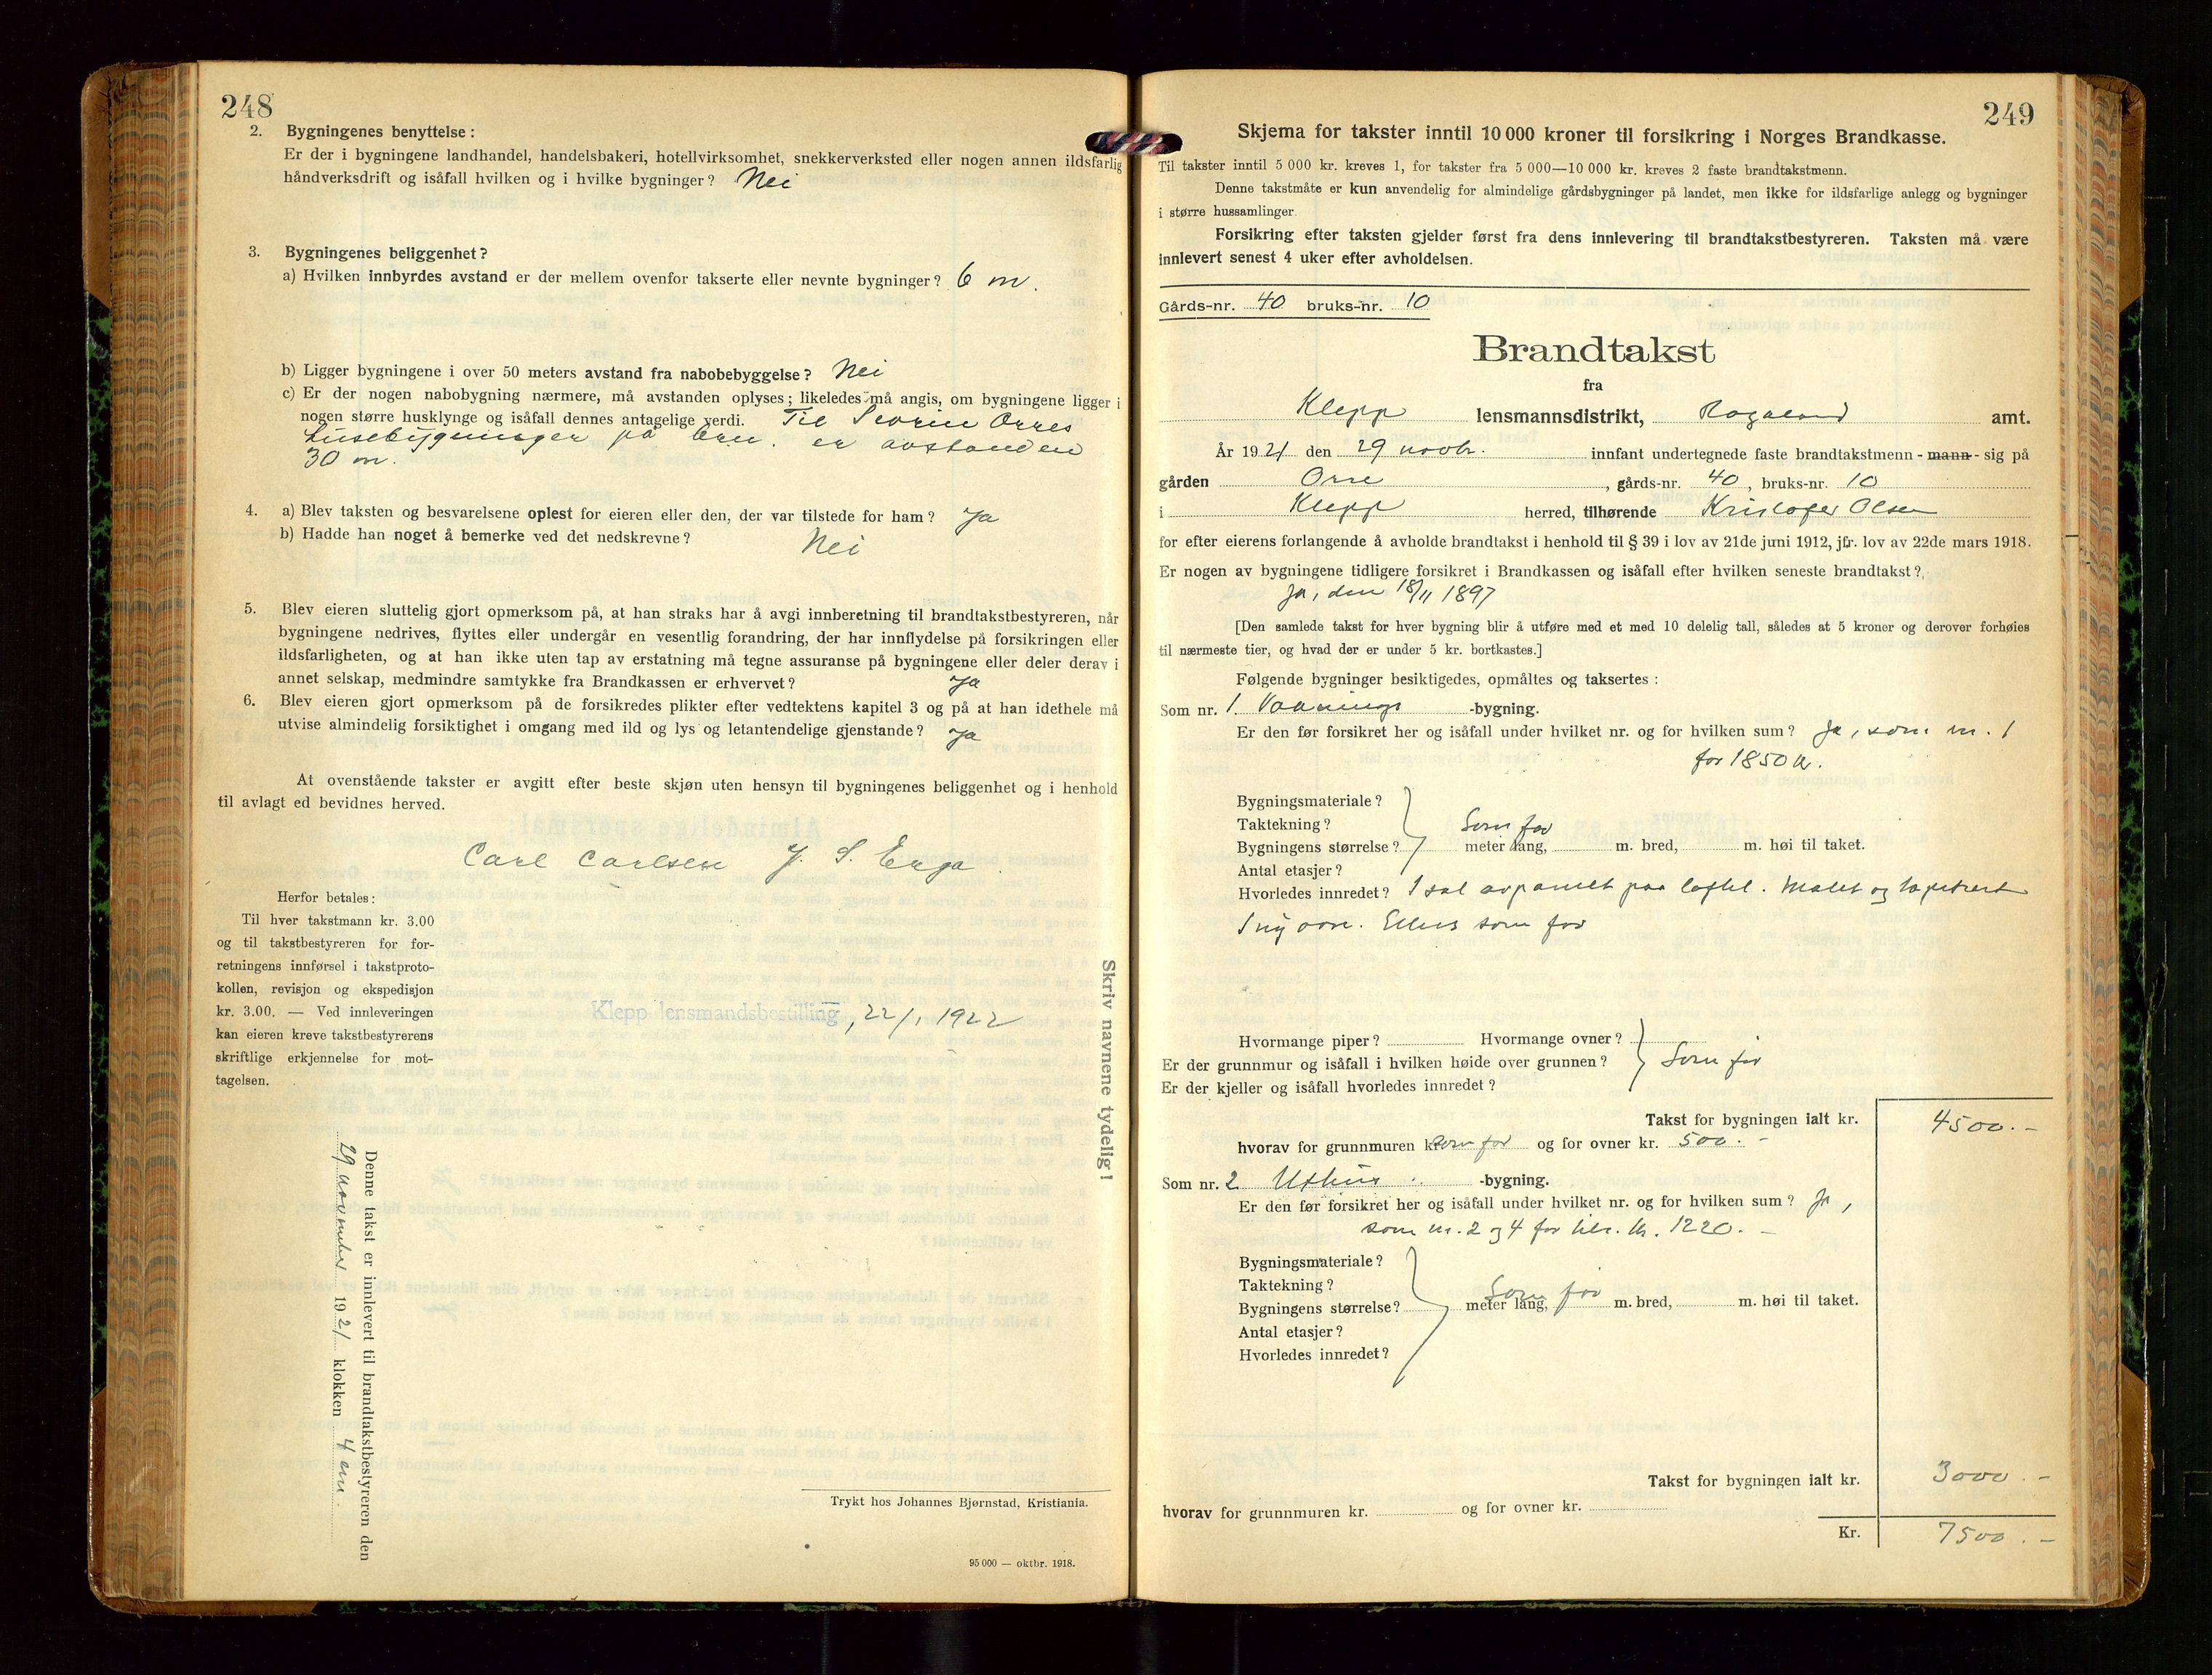 248
2. Bygningenes benyttelse :
Er der i bygningene landhandel, handelsbakeri, hotellvirksomhet, snekkerverksted eller nogen annen ildsfarlig
håndverksdrift og isåfall hvilken og i hvilke bygninger? Nei
3. Bygningenes beliggenhet?
a) Hvilken innbyrdes avstand er der mellem ovenfor takserte eller nevnte bygninger? 6 m.
b) Ligger bygningene i over 50 meters avstand fra nabobebyggelse? Nei
c) Er der nogen nabobygning nærmere, må avstanden oplyses; likeledes må angis, om bygningene ligger i
nogen større husklynge og isåfall dennes antagelige verdi. Til Orres
på er avstanden
30 m.
4. a) Blev taksten og besvarelsene oplest for eieren eller den, der var tilstede for ham? Ja
b) Hadde han noget å bemerke ved det nedskrevne? Nei
5. Blev eieren sluttelig gjort opmerksom på, at han straks har å avgi innberetning til brandtakstbestyreren, når
bygningene nedrives, flyttes eller undergår en vesentlig forandring, der har innflydelse på forsikringen eller
ildsfarligheten, og at han ikke uten tap av erstatning må tegne assuranse på bygningene eller deler derav i
annet selskap, medmindre samtykke fra Brandkassen er erhvervet? Ja
6. Blev eieren gjort opmerksom på de forsikredes plikter efter vedtektens kapitel 3 og på at han idethele må
utvise almindelig forsiktighet i omgang med ild og lys og letantendelige gjenstande? Ja
At ovenstående takster er avgitt efter beste skjøn uten hensyn til bygningenes beliggenhet og i henhold
til avlagt ed bevidnes herved.
Carl Carlsen J. S. Erga.
Herfor betales:
Til hver takstmann kr. 3.00
og til takstbestyreren for for-
retningens innførsel i takstproto-
kollen, revisjon og ekspedisjon
kr. 3.00. — Ved innleveringen
kan eieren kreve takstbestyrerens
skriftlige erkjennelse for mot-
tagelsen.
Klepp lensmandsbestilling, 22/1 1922
Skriv navnene tydelig!
Denne takst er innlevert til brandtakstbestyreren den
29 november 1921 klokken 4 em.
Trykt hos Johannes Bjørnstad, Kristiania.
95 000 — oktbr. 1918.
249
Skjema for takster inntil 10 000 kroner til forsikring i Norges Brandkasse.
Til takster inntil 5 000 kr. kreves 1, for takster fra 5 000—10 000 kr. kreves 2 faste brandtakstmenn.
Denne takstmåte er kun anvendelig for almindelige gårdsbygninger på landet, men ikke for ildsfarlige anlegg og bygninger
i større hussamlinger.
Forsikring efter taksten gjelder først fra dens innlevering til brandtakstbestyreren. Taksten må være
innlevert senest 4 uker efter avholdelsen.
Gårds-nr. 40 bruks-nr. 10
Brandtakst
fra
Klepp lensmannsdistrikt, Rogaland amt.
År 1921 den 29 novbr. innfant undertegnede faste brandtakstmenn - mann - sig på
gården Orre, gårds-nr. 40, bruks-nr. 10
i Klepp herred, tilhørende Kristofer Olsen
for efter eierens forlangende å avholde brandtakst i henhold til § 39 i lov av 21de juni 1912, jfr. lov av 22de mars 1918.
Er nogen av bygningene tidligere forsikret i Brandkassen og isåfall efter hvilken seneste brandtakst?
Ja, den 18/11 1897
[Den samlede takst for hver bygning blir å utføre med et med 10 delelig tall, således at 5 kroner og derover forhøies
til nærmeste tier, og hvad der er under 5 kr. bortkastes.]
Følgende bygninger besiktigedes, opmåltes og taksertes :
Som nr. 1. Vaanings -bygning.
Er den før forsikret her og isåfall under hvilket nr. og for hvilken sum? Ja, som nr. 1
for 1850 kr.
Bygningsmateriale?
Taktekning? Som før
Bygningens størrelse? meter lang, m. bred, m. høi til taket.
Antal etasjer?
Hvorledes innredet? 1 sal avpanelt paa loftet. Malet og tapetsert
1 ny ovn. Ellers som før
Hvormange piper? Hvormange ovner?
Er der grunnmur og isåfall i hvilken høide over grunnen? Som før
Er der kjeller og isåfall hvorledes innredet?
Takst for bygningen ialt kr. 4500.-
hvorav for grunnmuren kr. som før og for ovner kr. 500.-
Som nr. 2 Uthus -bygning.
Er den før forsikret her og isåfall under hvilket nr. og for hvilken sum? Ja,
som nr. 2 og 4 for tils. kr. 1220.-
Bygningsmateriale?
Taktekning? Som før
Bygningens størrelse? meter lang, m. bred, m. høi til taket.
Antal etasjer?
Hvorledes innredet?
Takst for bygningen ialt kr. 3000.-
hvorav for grunnmuren kr. og for ovner kr.
Kr. 7500.-